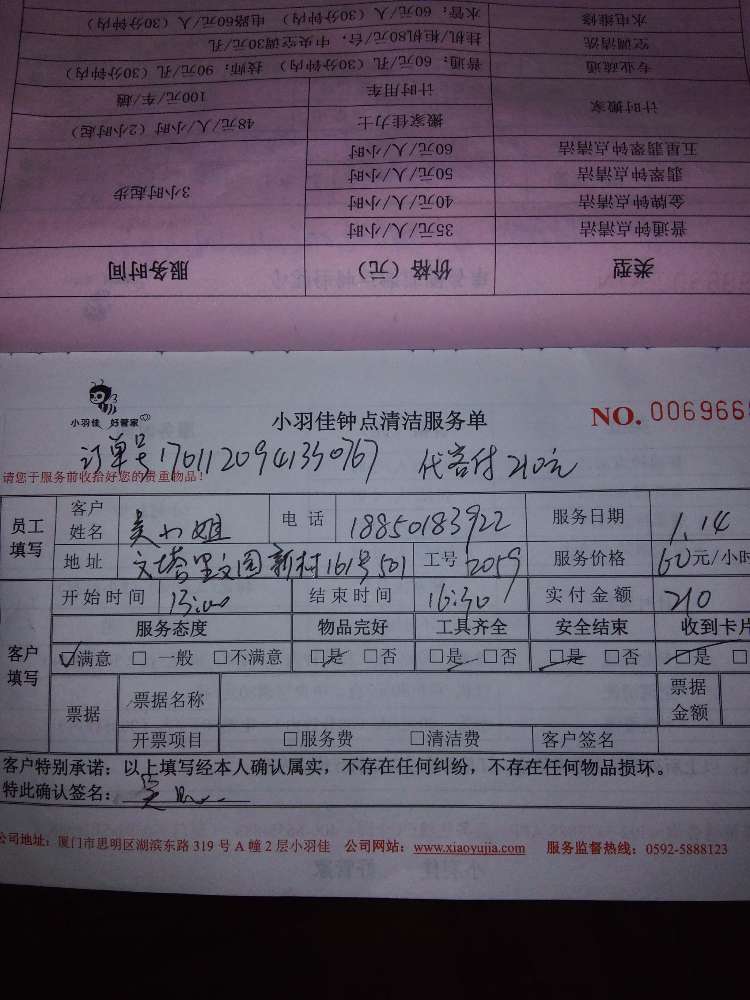 水电维修 水管：60元/人（30分钟内） 电路60元/人（30分钟内）
空调清洗 挂机/柜机80元/台，中央空调30元/孔
专业疏通 普通：60元/孔（30分钟内） 技师：90元/孔（30分钟内）
计时搬家 计时用车 100元/车/趟
搬家佳力士 48元/人/小时（2小时起）
五星翡翠钟点清洁 60元/人/小时 3小时起步
翡翠钟点清洁 50元/人/小时
金牌钟点清洁 40元/人/小时
普通钟点清洁 35元/人/小时
类型 价格（元） 服务时间
小羽佳 好管家
小羽佳钟点清洁服务单
NO. 006966
订单号1701120941350767 代客付210元
请您于服务前收拾好您的贵重物品！
员工填写 客户姓名 吴小姐 电话 18850183922 服务日期 1.14
地址 文塔里文园新村161号501 工号 2059 服务价格 60元/小时
开始时间 13:00 结束时间 16:30 实付金额 210
客户填写 服务态度 物品完好 工具齐全 安全结束 收到卡片
☑满意 □一般 □不满意 □是 □否 □是 □否 □是 □否 □是 □
票据 票据名称 票据金额
开票项目 □服务费 □清洁费 客户签名
客户特别承诺：以上填写经本人确认属实，不存在任何纠纷，不存在任何物品损坏。
特此确认签名： 吴
公司地址：厦门市思明区湖滨东路 319 号 A 幢 2 层小羽佳 公司网站：www.xiaoyujia.com 服务监督热线：0592-5888123